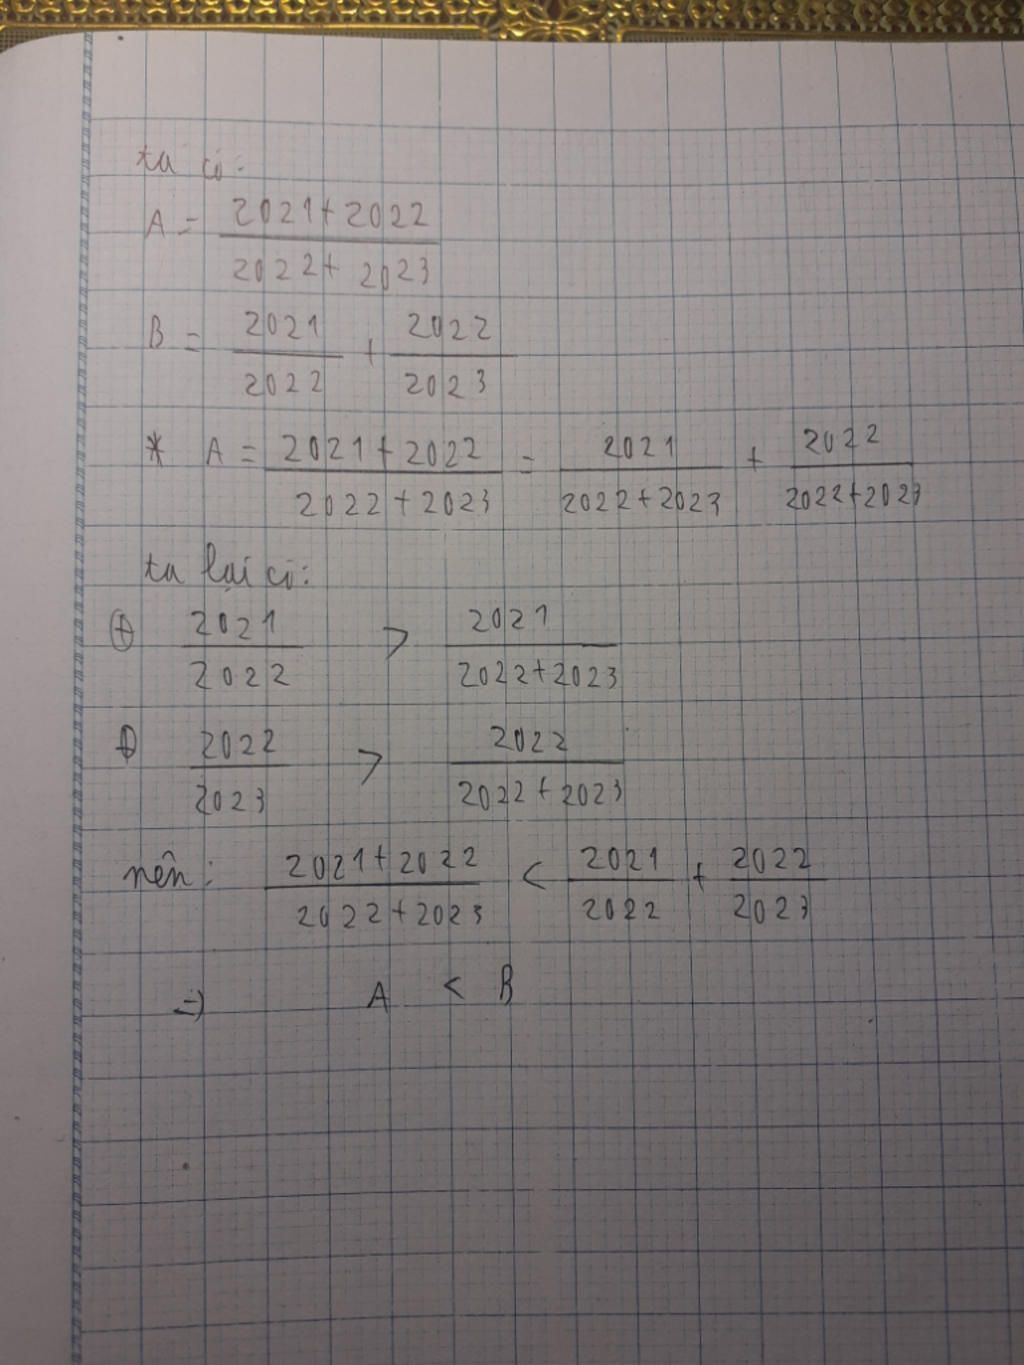 ta có:
A = 2021+2022 / 2022+2023
B = 2021 / 2022 + 2022 / 2023
* A = 2021+2022 / 2022+2023 = 2021 / 2022+2023 + 2022 / 2022+2023
ta lại có:
⊕ 2021 / 2022 > 2021 / 2022+2023
⊕ 2022 / 2023 > 2022 / 2022+2023
nên: 2021+2022 / 2022+2023 < 2021 / 2022 + 2022 / 2023
=) A < B